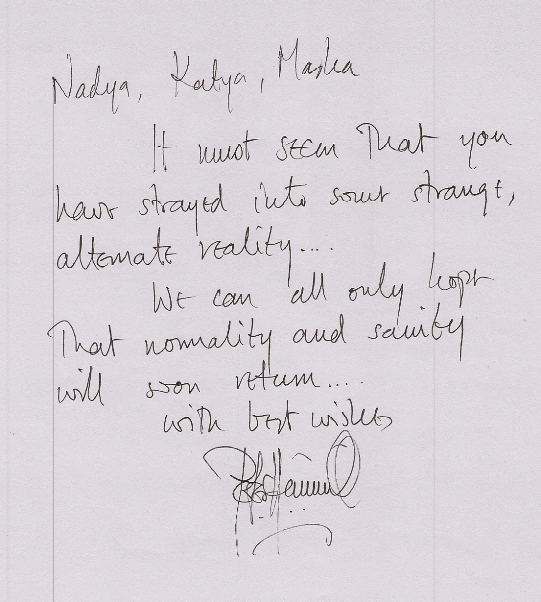 Nadya, Katya, Masha
It must seem That you
have strayed into some strange,
alternate reality....
We can all only hope
That normality and sanity
will soon return....
with best wishes
Peter Hammill